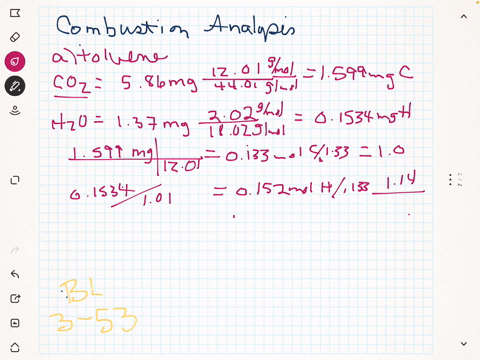 Combustion Analysis
a) toluene
CO2 = 5.86mg 12.01 g/mol / 44.01 g/mol = 1.599mg C
H2O = 1.37 mg 2.02 g/mol / 18.02 g/mol = 0.1534 mg H
1.599 mg / 12.01 = 0.133 mol C/.133 = 1.0
0.1534 / 1.01 = 0.152 mol H/.133 1.14
BL
3-53